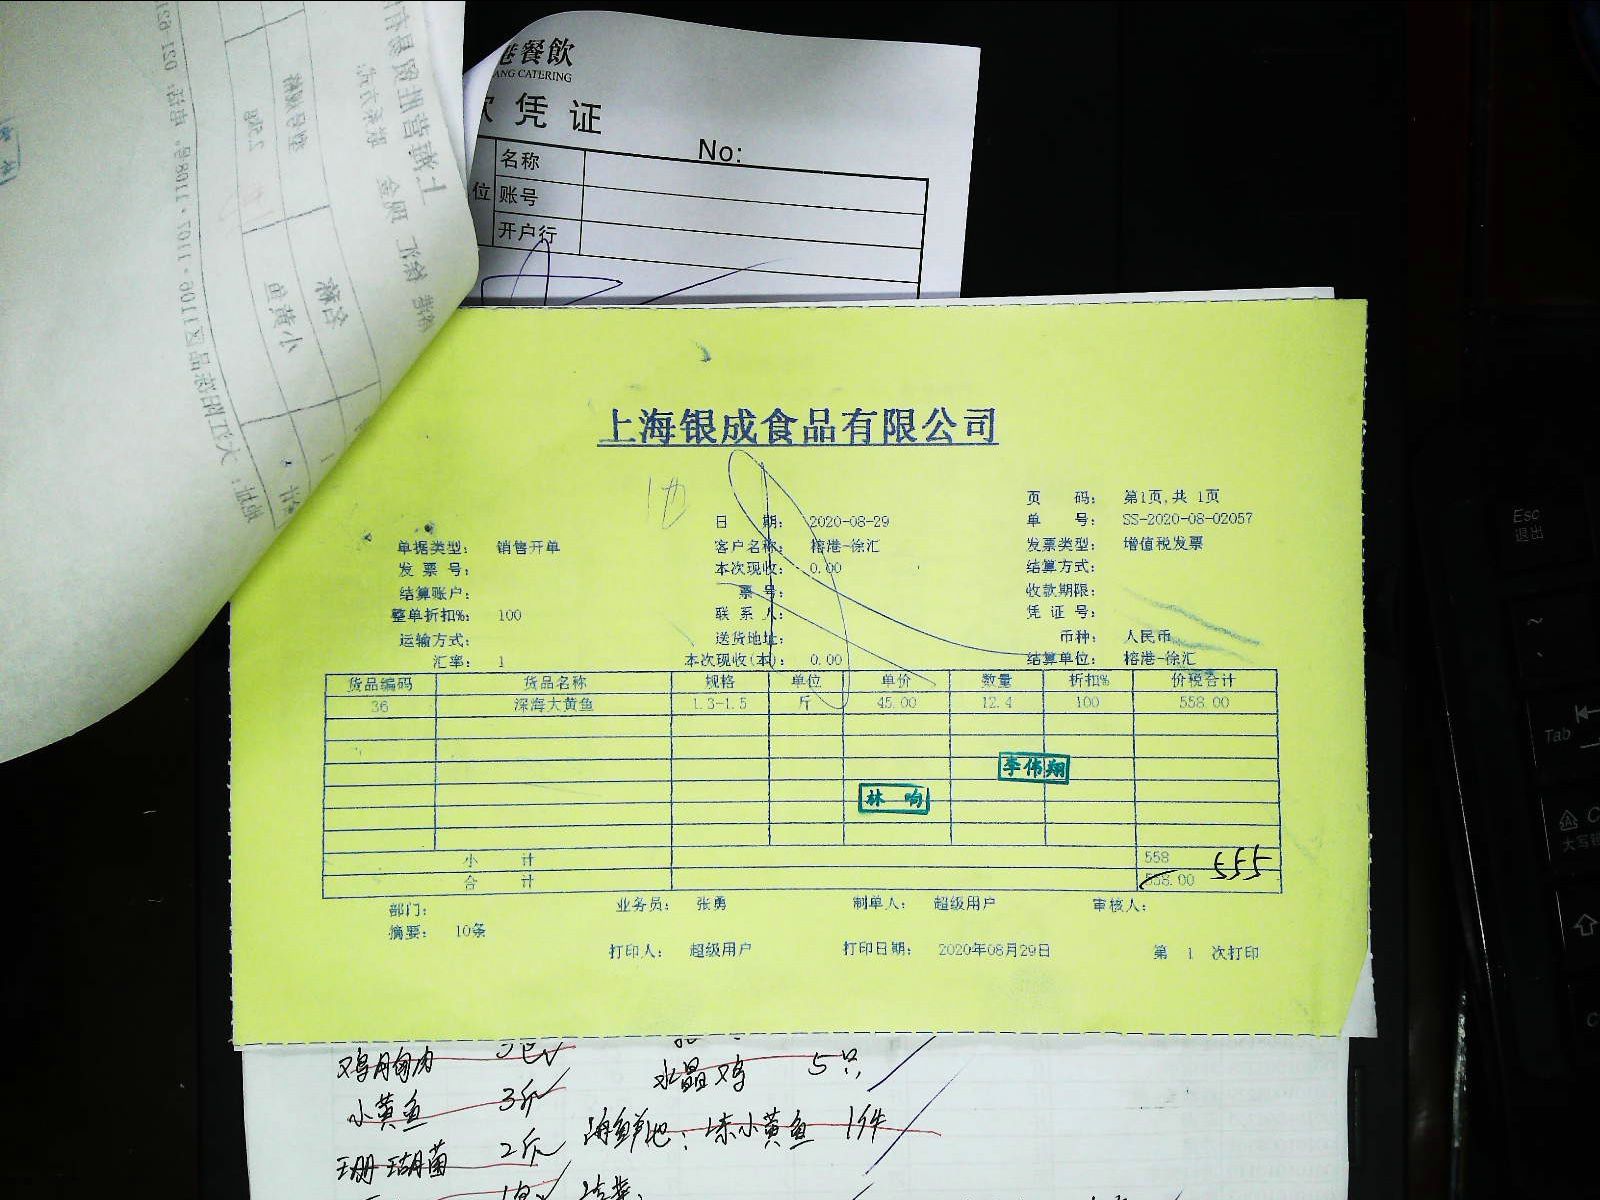 港餐飲
ANG CATERING
凭证
No:
名称
位 账号
开户行
上海银成食品有限公司
页 码: 第1页,共 1页
日 期: 2020-08-29 单 号: SS-2020-08-02057
单据类型: 销售开单 客户名称: 榕港-徐汇 发票类型: 增值税发票
发 票 号: 本次现收: 0.00 结算方式:
结算账户: 票 号: 收款期限:
整单折扣%: 100 联 系 人: 凭 证 号:
运输方式: 送货地址: 币种: 人民币
汇率: 1 本次现收(本): 0.00 结算单位: 榕港-徐汇
货品编码 货品名称 规格 单位 单价 数量 折扣% 价税合计
36 深海大黄鱼 1.3-1.5 斤 45.00 12.4 100 558.00
李伟翔
林 响
小 计 558 555
合 计 558.00
部门: 业务员: 张勇 制单人: 超级用户 审核人:
摘要: 10条
打印人: 超级用户 打印日期: 2020年08月29日 第 1 次打印
鸡胸肉 水晶鸡 5只
小黄鱼 3斤
海鲜池: 冻小黄鱼 1件
珊瑚菌 2斤
Esc
退出
Tab
大写锁